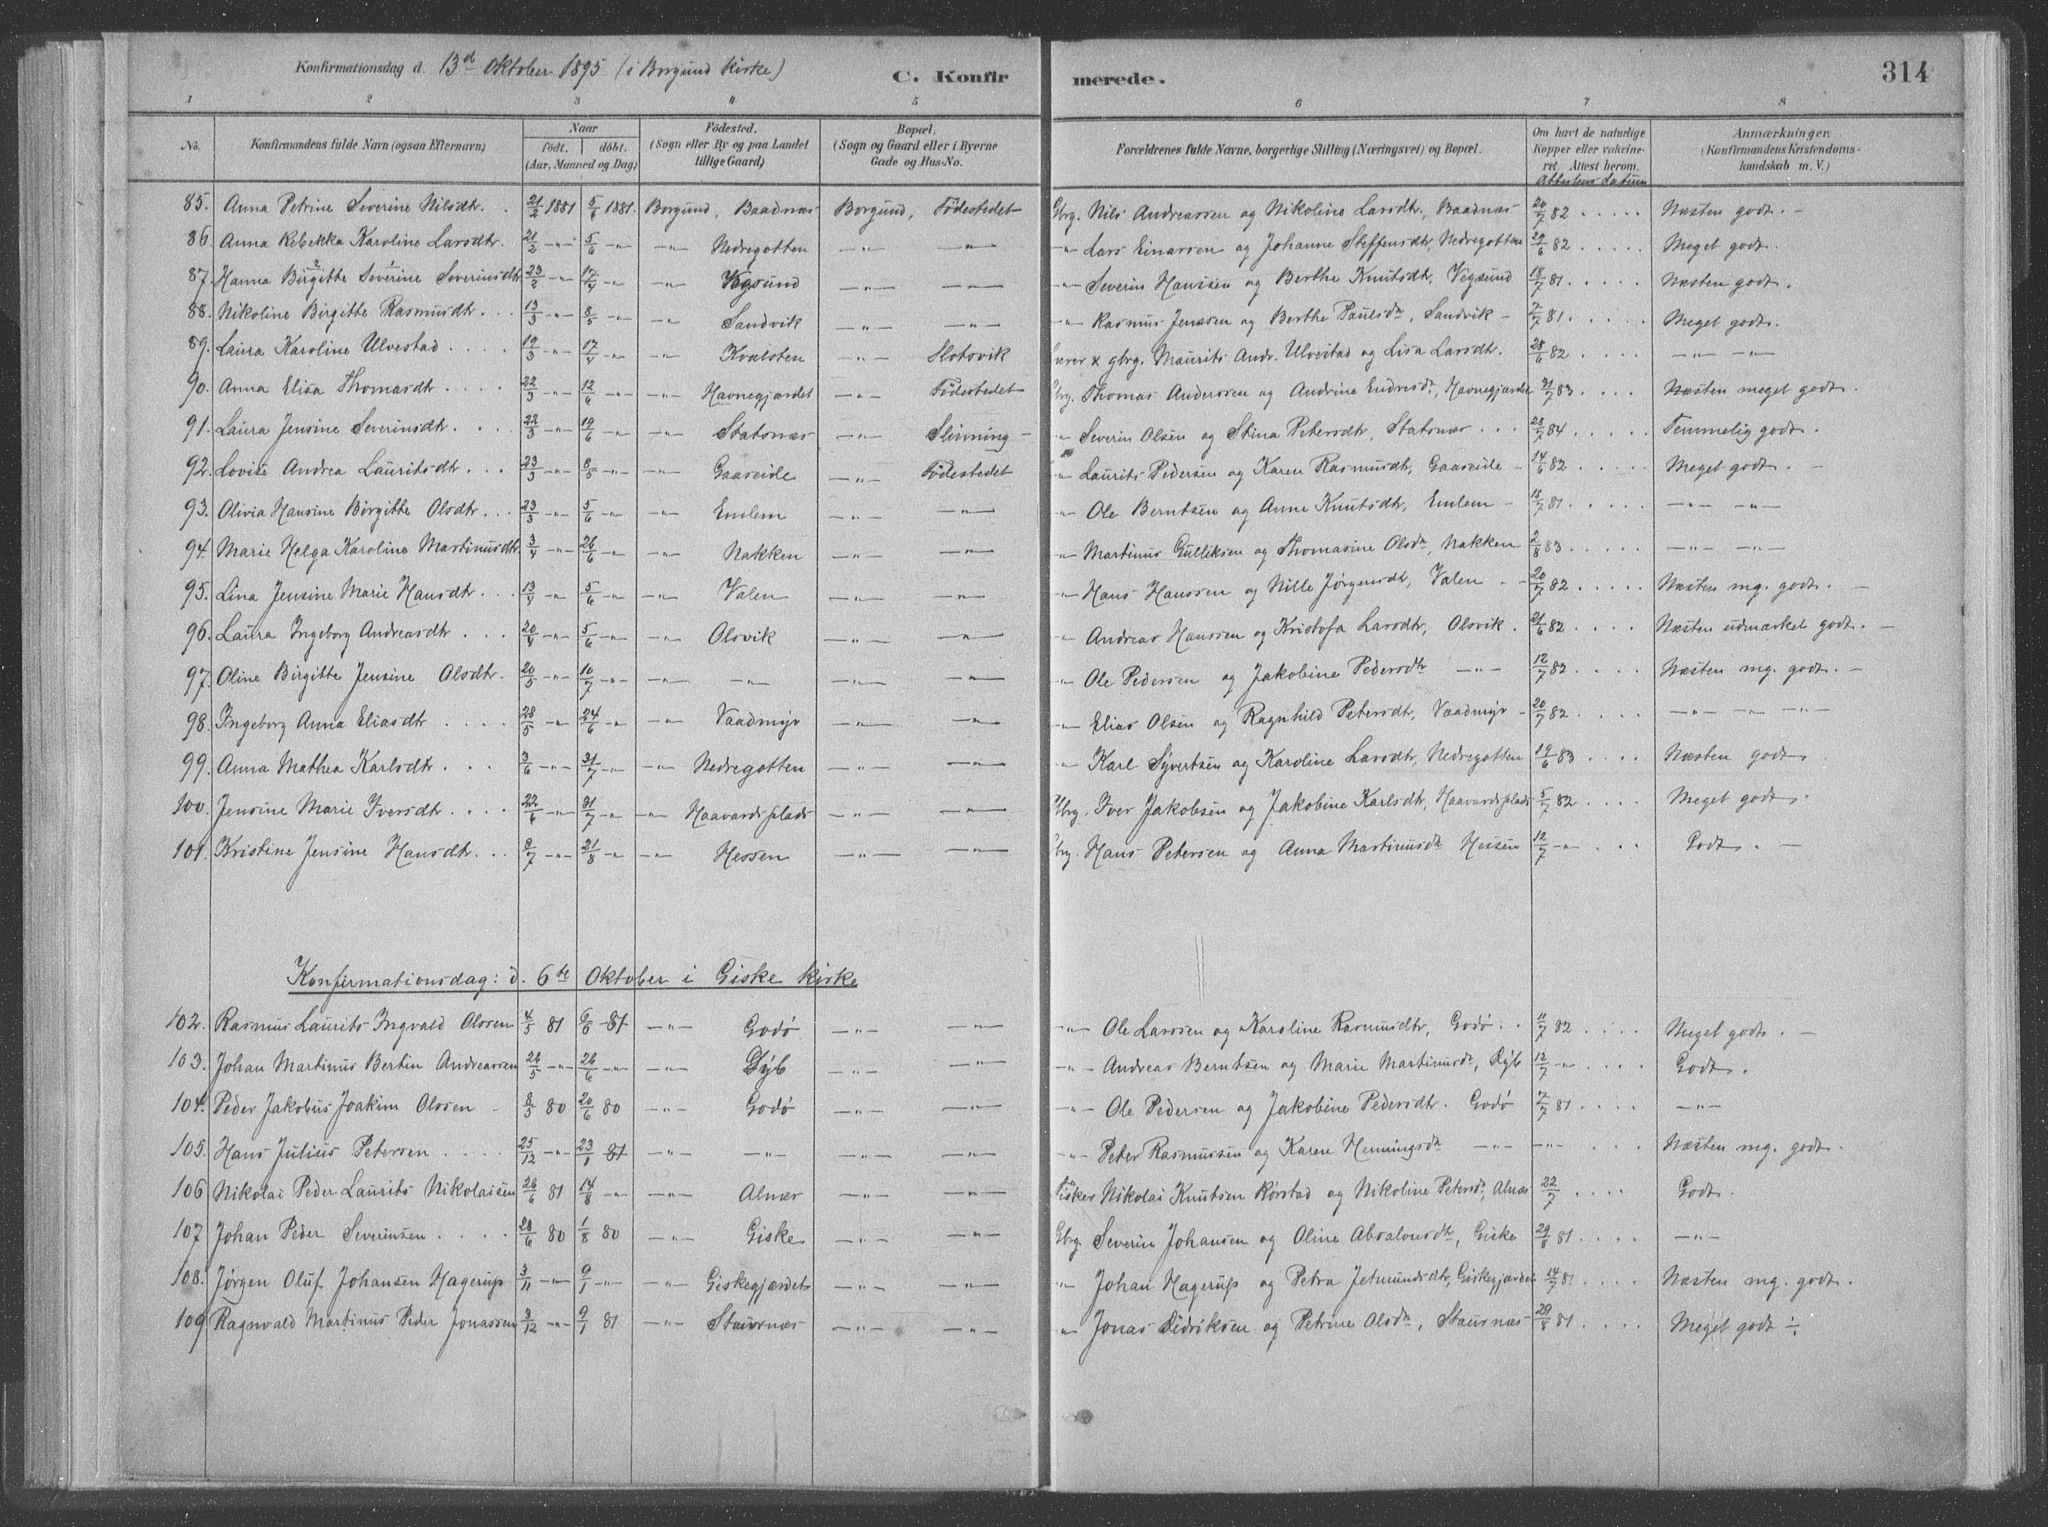 Konfirmationsdag d. 13d Oktober 1895 (i Borgund Kirke) C. Konfir merede. 314
1 2 3 4 5 6 7 8
No. Konfirmandens fulde Navn (ogsaa Efternavn) Naar født. døbt. (Aar, Maaned og Dag) Födested. (Sogn eller By og paa Landet tillige Gaard) Bopæl. (Sogn og Gaard eller i Byerne Gade og Hus-No. Forældrenes fulde Navne, borgerlige Stilling (Næringsvei) og Bopæl. Om havt de naturlige Kopper eller vakcineret. Attest herom. Attestens datum Anmærkninger. (Konfirmandens Kristendomskundskab m. V.)
85. Anna Petrine Severine Nilsdtr. 21/2 1881 5/6 1881. Borgund, Baadnæs Borgund, Fødestedet Gbrg. Nils Andreassen og Nikoline Larsdtr, Baadnæs 20/7 82 Næsten godt. -
86. Anna Rebekka Karoline Larsdtr. 21/2 -"- 5/6 -"- -"- Nedregotten -"- -"- -"- Lars Einarsen og Johanne Steffensdtr, Nedregotten 29/6 82 Meget godt.
87. Hanna Birgitte Severine Severinsdtr 23/2 -"- 17/4 -"- -"- Vegsund -"- -"- -"- Severin Hanssen og Berthe Knutsdtr, Vegsund 18/7 81 Næsten godt.
88. Nikoline Birgitte Rasmusdtr. 13/3 -"- 8/5 -"- -"- Sandvik -"- -"- -"- Rasmus Jenssen og Berthe Paulsdtr, Sandvik - 7/7 81 Meget godt.
89. Laura Karoline Ulvestad 19/3 -"- 17/4 -"- -"- Kvalsten -"- Slotsvik Lærer x gbrg. Maurits Andr. Ulvestad og Lisa Larsdtr. 28/6 82 -"- -"-
90. Anna Elisa Thomasdtr 22/3 -"- 12/6 -"- -"- Havnegjærdet -"- Fødestedet Gbrg. Thomas Anderssen og Andrine Endresdtr, Havnegjærdet 31/7 83 Næsten meget godt.
91. Laura Jensine Severinsdtr. 22/3 -"- 19/6 -"- -"- Statsnæs -"- Slinning -"- Severin Olsen og Stina Petersdtr, Statsnæs 28/7 84 Temmelig godt.
92. Lovise Andrea Lauritsdtr 23/3 -"- 8/5 -"- -"- Gaaseide -"- Fødestedet -"- Laurits Pedersen og Karen Rasmusdtr, Gaaseide - 14/6 82 Meget godt. -
93. Olivia Hansine Birgitte Olsdtr 23/3 -"- 5/6 -"- -"- Emlem -"- -"- -"- Ole Berntsen og Anne Knutsdtr, Emlem - 18/7 81 -"- -"-
94. Marie Helga Karoline Martinusdtr 3/4 -"- 26/6 -"- -"- Nakken -"- -"- -"- Martinus Gulliksen og Thomasine Olsdtr, Nakken 2/8 83 -"- -"-
95. Lina Jensine Marie Hansdtr. 13/4 -"- 5/6 -"- -"- Valen -"- -"- -"- Hans Hanssen og Nille Jørgensdtr, Valen - 20/7 82 Næsten mg. godt. -
96. Laura Ingeborg Andreasdtr 20/4 -"- 5/6 -"- -"- Olsvik -"- -"- -"- Andreas Hanssen og Kristofa Larsdtr, Olsvik. 21/6 82 Næsten udmærket godt. -
97. Oline Birgitte Jensine Olsdtr. 20/5 -"- 10/7 -"- -"- -"- -"- -"- -"- Ole Pedersen og Jakobine Pedersdtr -"- 12/7 82 Næsten mg. godt. -
98. Ingeborg Anna Eliasdtr 28/5 -"- 24/6 -"- -"- Vaadmyr -"- -"- -"- Elias Olsen og Ragnhild Petersdtr, Vaadmyr - 20/7 82 -"- -"- -"-
99. Anna Mathea Karlsdtr 3/6 -"- 31/7 -"- -"- Nedregotten -"- -"- -"- Karl Syvertsen og Karoline Larsdtr, Nedregotten 19/6 83 Næsten godt.
100. Jensine Marie Iversdtr 22/6 -"- 31/7 -"- -"- Haavardsplads -"- -"- Gbrg. Iver Jakobsen og Jakobine Karlsdtr, Haavardsplads 5/7 82 Meget godt.
101. Kristine Jensine Hansdtr 8/7 -"- 21/8 -"- -"- Hessen -"- -"- Gbrg. Hans Petersen og Anna Martinusdtr Hessen 12/7 -"- Godt. -
Konfirmationsdag: d. 6te Oktober i Giske Kirke
102. Rasmus Laurits Ingvald Olssen 4/5 81 81 -"- Godø -"- -"- -"- Ole Larssen og Karoline Rasmusdtr, Godø 11/7 82 Meget godt. -
103. Johan Martinus Bertin Andreassen 26/5 -"- 26/6 -"- -"- Dyb -"- -"- -"- Andreas Berntsen og Marie Martinusdtr, Dyb 12/7 -"- Godt.
104. Peder Jakobus Joakim Olssen 8/5 80 20/6 80 -"- Godø -"- -"- -"- Ole Pedersen og Jakobine Pedersdtr. Godø 7/7 81 -"-
105. Hans Julius Petersen 25/12 -"- 23/1 81 -"- -"- -"- -"- -"- Peder Rasmussen og Karen Henningsdtr -"- -"- Næsten mg. godt.
106 Nikolai Peder Laurits Nikolaisen 26/6 81 14/8 -"- -"- Alnæs -"- -"- Fisker Nikolai Knutsen Rørstad og Nikoline Petersdtr, Alnæs 22/7 Godt.
107 Johan Peder Severinsen 28/6 80 1/8 80 -"- Giske -"- -"- Gbrg. Severin Johansen og Oline Absalonsdtr, Giske 29/8 81 -"-
108. Jørgen Oluf Johansen Hagerup 3/11 -"- 9/1 -"- -"- Giskegjærdet -"- -"- -"- Johan Hagerup og Petra Jetmundsdtr, Giskegjærdet 14/7 81 Næsten mg. godt.
109 Ragnvald Martinus Peder Jonassen 3/12 -"- 9/1 81 -"- Staurnæs -"- -"- -"- Jonas Didriksen og Petrine Olsdtr, Staurnæs 29/8 81 Meget godt